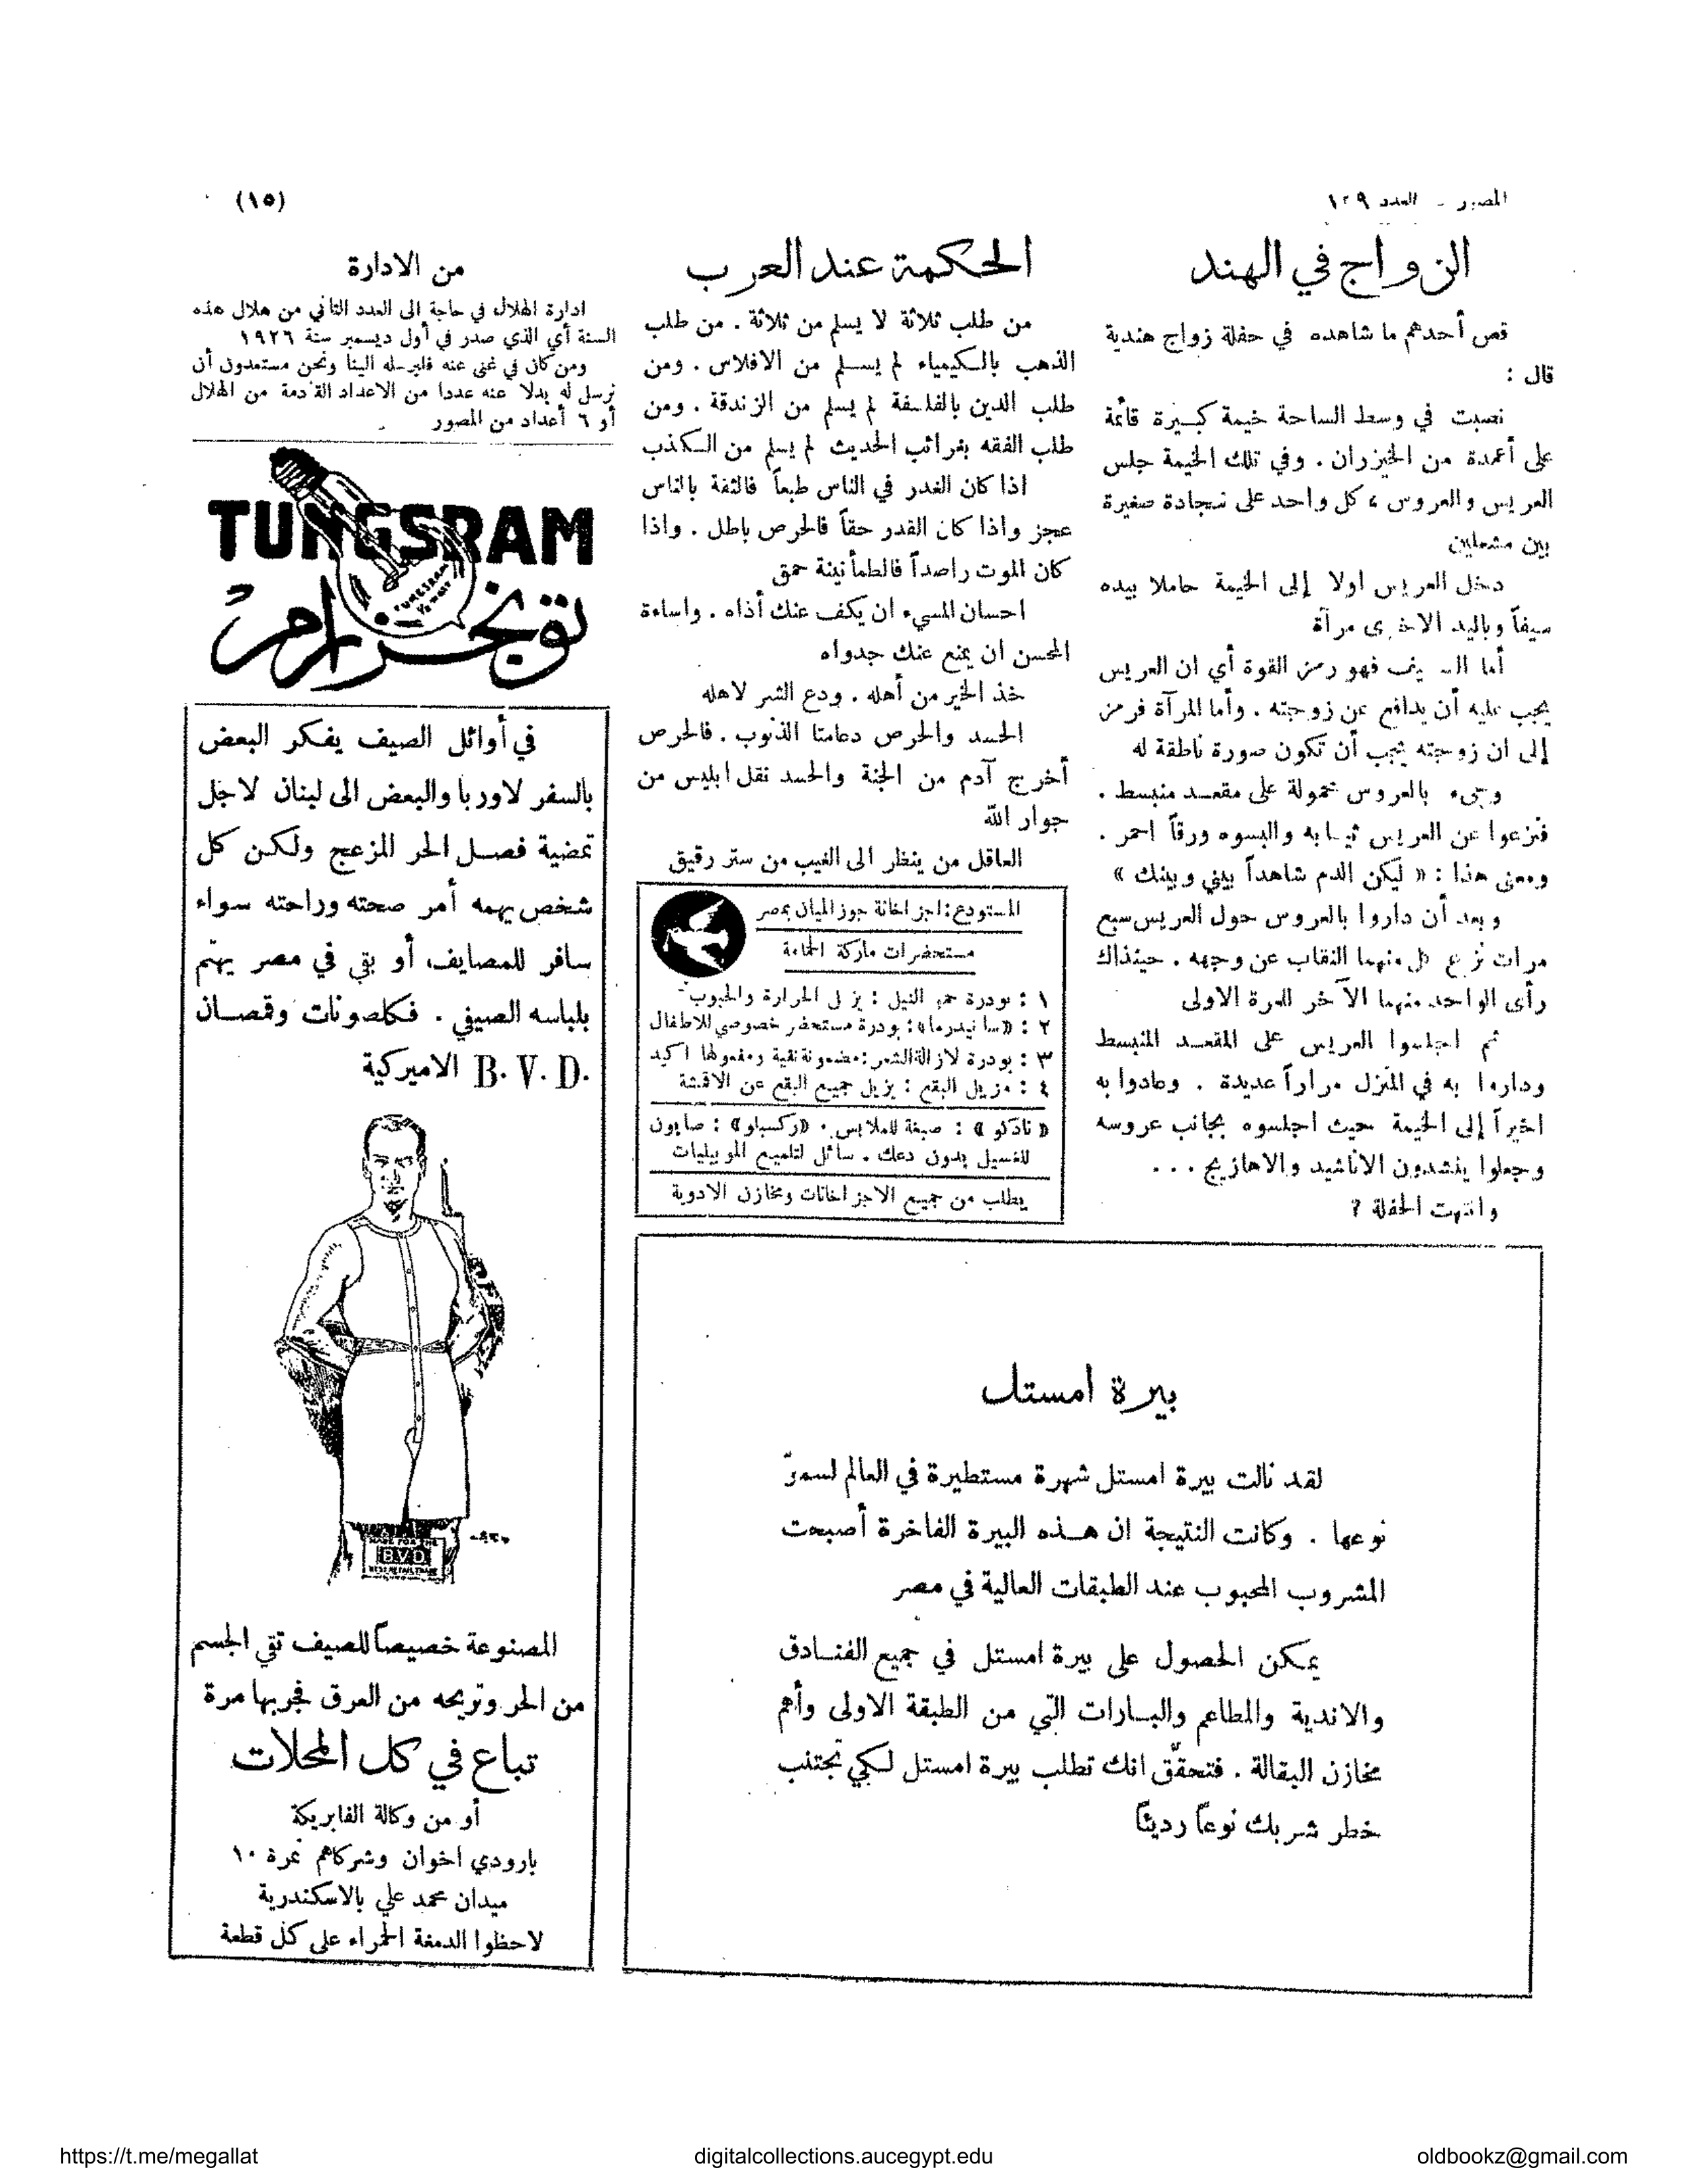 المصور - العدد ١٣٩
(١٥)
الزواج في الهند
قص أحدهم ما شاهده في حفلة زواج هندية
قال :
نصبت في وسط الساحة خيمة كبيرة قائمة
على أعمدة من الخيزران . وفي تلك الخيمة جلس
العريس والعروس ، كل واحد على سجادة صغيرة
بين مشعلين
دخل العريس اولا إلى الخيمة حاملا بيده
سيفاً وباليد الاخرى مرآة
أما السيف فهو رمز القوة أي ان العريس
يجب عليه أن يدافع عن زوجته . وأما المرآة فرمز
إلى ان زوجته يجب أن تكون صورة ناطقة له
وجيء بالعروس محمولة على مقعد منبسط .
فنزعوا عن العريس ثيابه والبسوه ورقاً احمر .
ومعنى هذا : « ليكن الدم شاهداً بيني وبينك »
وبعد أن داروا بالعروس حول العريس سبع
مرات نزع كل منهما النقاب عن وجهه . حينذاك
رأى الواحد منهما الآخر للمرة الاولى
ثم اجلسوا العريس على المقعد المنبسط
وداروا به في المنزل مراراً عديدة . وعادوا به
اخيراً إلى الخيمة حيث اجلسوه بجانب عروسه
وجعلوا ينشدون الاناشيد والاهازيج . . .
وانتهت الحفلة ?
الحكمة عند العرب
من طلب ثلاثة لا يسلم من ثلاثة . من طلب
الذهب بالكيمياء لم يسلم من الافلاس . ومن
طلب الدين بالفلسفة لم يسلم من الزندقة . ومن
طلب الفقه بغرائب الحديث لم يسلم من الكذب
اذا كان الغدر في الناس طبعاً فالثقة بالناس
عجز واذا كان القدر حقاً فالحرص باطل . واذا
كان الموت راصداً فالطمأنينة حمق
احسان المسيء ان يكف عنك أذاه . واساءة
المحسن ان يمنع عنك جدواه
خذ الخير من أهله . ودع الشر لاهله
الحسد والحرص دعامتا الذنوب . فالحرص
أخرج آدم من الجنة والحسد نقل ابليس من
جوار الله
العاقل من ينظر الى الغيب من ستر رقيق
المستودع : اجزاخانة جوز الميان بمصر
مستحضرات ماركة الحمامة
١ : بودرة حمو النيل : يزيل الحرارة والحبوب
٢ : «سانيدرما» : بودرة مستحضر خصوصي للاطفال
٣ : بودرة لازالة الشعر : مضمونة نقية ومفعولها اكيد
٤ : مزيل البقع : يزيل جميع البقع عن الاقمشة
« نادكو » : صبغة للملابس . «ركسباو» : صابون
للغسيل بدون دعك . سائل لتلميع الموبيليات
يطلب من جميع الاجزاخانات ومخازن الادوية
من الادارة
ادارة الهلال في حاجة الى العدد الثاني من هلال هذه
السنة أي الذي صدر في أول ديسمبر سنة ١٩٢٦
ومن كان في غنى عنه فليرسله الينا ونحن مستعدون أن
نرسل له بدلا عنه عددا من الاعداد القادمة من الهلال
أو ٦ أعداد من المصور
TUNGSRAM
TUNGSRAM
توبخسرام
في أوائل الصيف يفكر البعض
بالسفر لاوربا والبعض الى لبنان لاجل
تمضية فصل الحر المزعج ولكن كل
شخص يهمه أمر صحته وراحته سواء
سافر للمصايف أو بقي في مصر يهتم
بلباسه الصيفي . فكلصونات وقمصان
B. V. D. الاميركية
MADE FOR THE
B.V.D.
BEST RETAIL TRADE
المصنوعة خصيصاً للصيف تقي الجسم
من الحر وتريحه من العرق فجربها مرة
تباع في كل المحلات
أو من وكالة الفابريكة
بارودي اخوان وشركاهم نمرة ١٠
ميدان محمد علي بالاسكندرية
لاحظوا الدمغة الحمراء على كل قطعة
بيرة امستل
لقد نالت بيرة امستل شهرة مستطيرة في العالم لسموّ
نوعها . وكانت النتيجة ان هذه البيرة الفاخرة أصبحت
المشروب المحبوب عند الطبقات العالية في مصر
يمكن الحصول على بيرة امستل في جميع الفنادق
والاندية والمطاعم والبارات التي من الطبقة الاولى وأهم
مخازن البقالة . فتحقّق انك تطلب بيرة امستل لكي تجتنب
خطر شربك نوعاً رديئاً
https://t.me/megallat
digitalcollections.aucegypt.edu
oldbookz@gmail.com